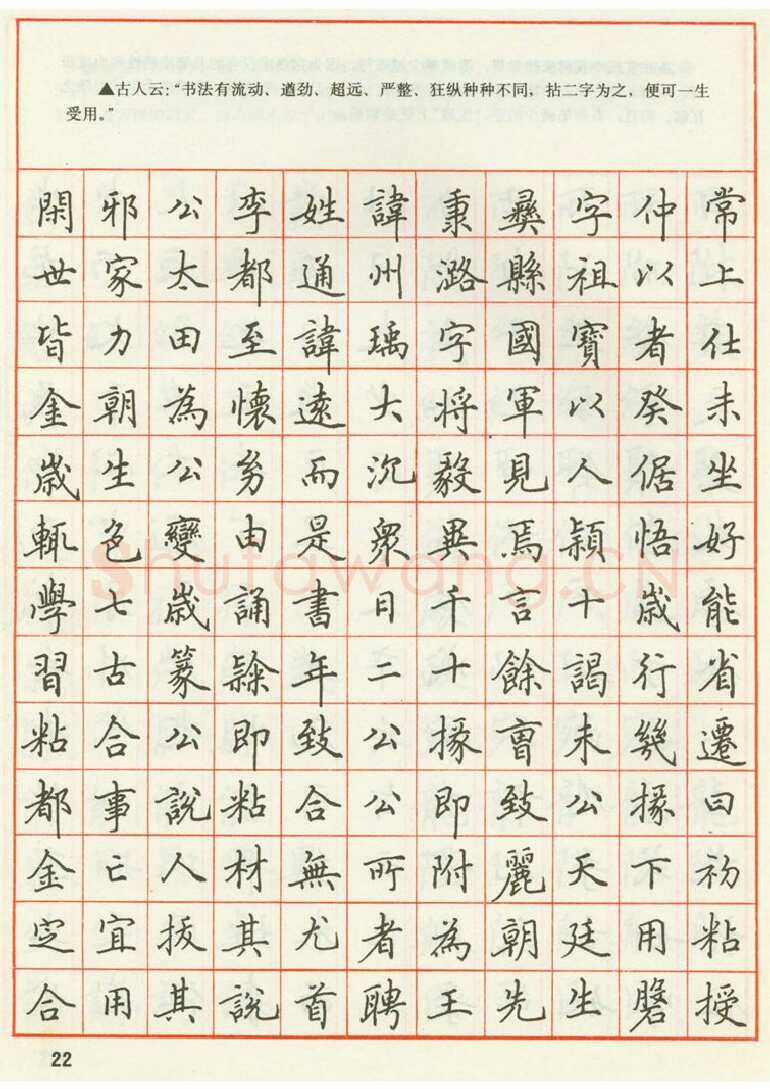 ▲古人云：“书法有流动、遒劲、超远、严整、狂纵种种不同，拈二字为之，便可一生
受用。”
閑邪公李姓諱秉彝字仲常
世家太都通州潞縣祖以上
皆力田至諱瑀字國寶者仕
金朝為懷遠大將軍以癸未
歲生公幼而沉毅見人倨坐
輒色變由是衆異焉穎悟好
學七歲誦書日千言十歲能
習古篆隸年二十餘謁行省
粘合公即致公掾會未幾遷
都事說粘合公即致公掾曰
金亡人材無所附麗天下初
定宜拔其尤者為朝廷用粘
合用其說首聘王先生授
shufawang.CN
22